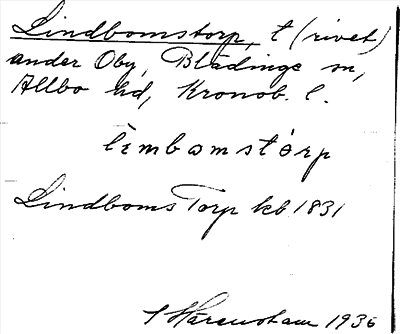 Lindbomstorp, t (rivet)
under Oby, Blädinge sn,
Allbo hd, Kronob. l.
lìmbomstórp
Lindboms Torp kb 1831
1936